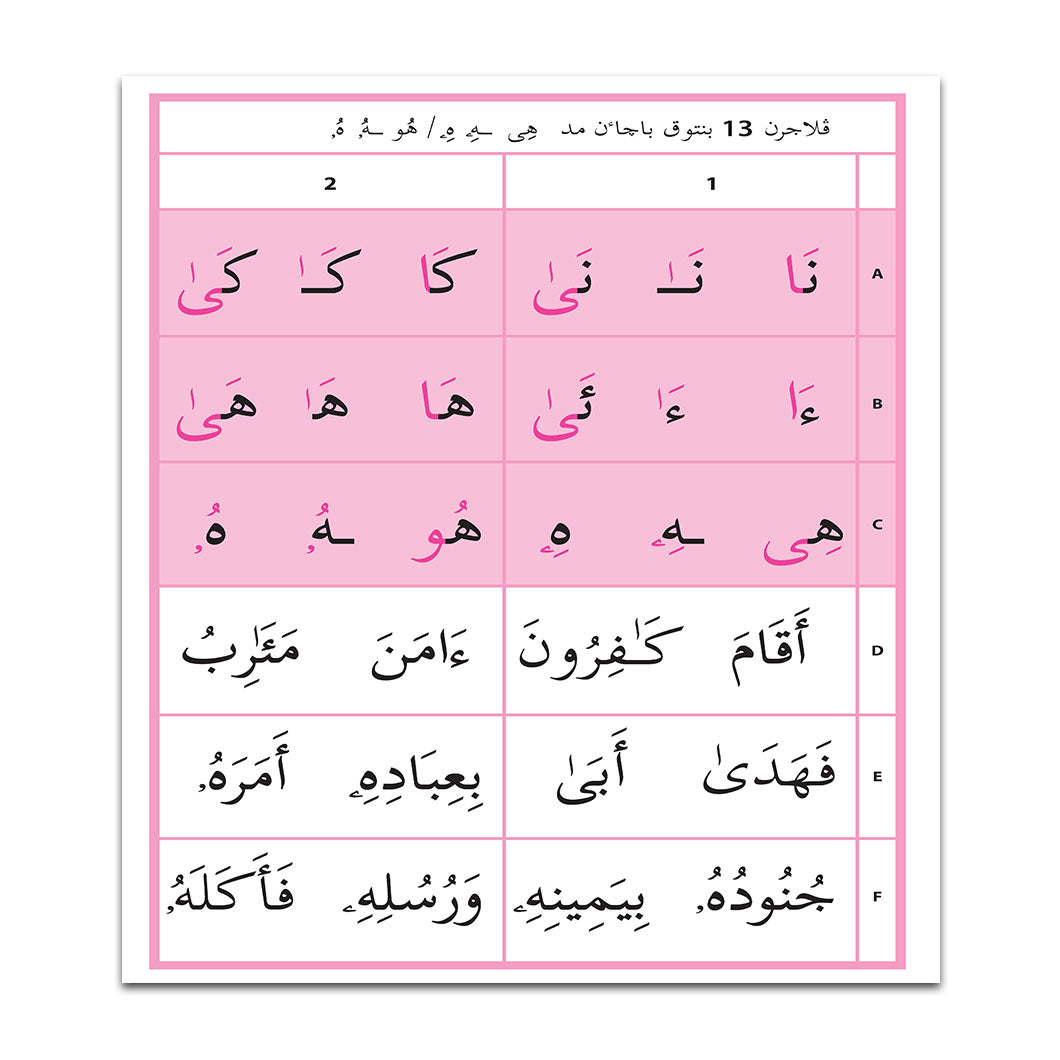 ڤلاجرن 13 بنتوق باچاءن مد هِى ـهِۦ هِۦ / هُو ـهُۥ هُۥ
1 2
A نَا نَـٰ نَىٰ كَا كَـٰ كَىٰ
B ءَا ءَٰ ئَىٰ هَا هَٰ هَىٰ
C هِى ـهِۦ هِۦ هُو ـهُۥ هُۥ
D أَقَامَ كَـٰفِرُونَ ءَامَنَ مَـَٔـٰرِبُ
E فَهَدَىٰ أَبَىٰ بِعِبَادِهِۦ أَمَرَهُۥ
F جُنُودُهُۥ بِيَمِينِهِۦ وَرُسُلِهِۦ فَأَكَلَهُۥ